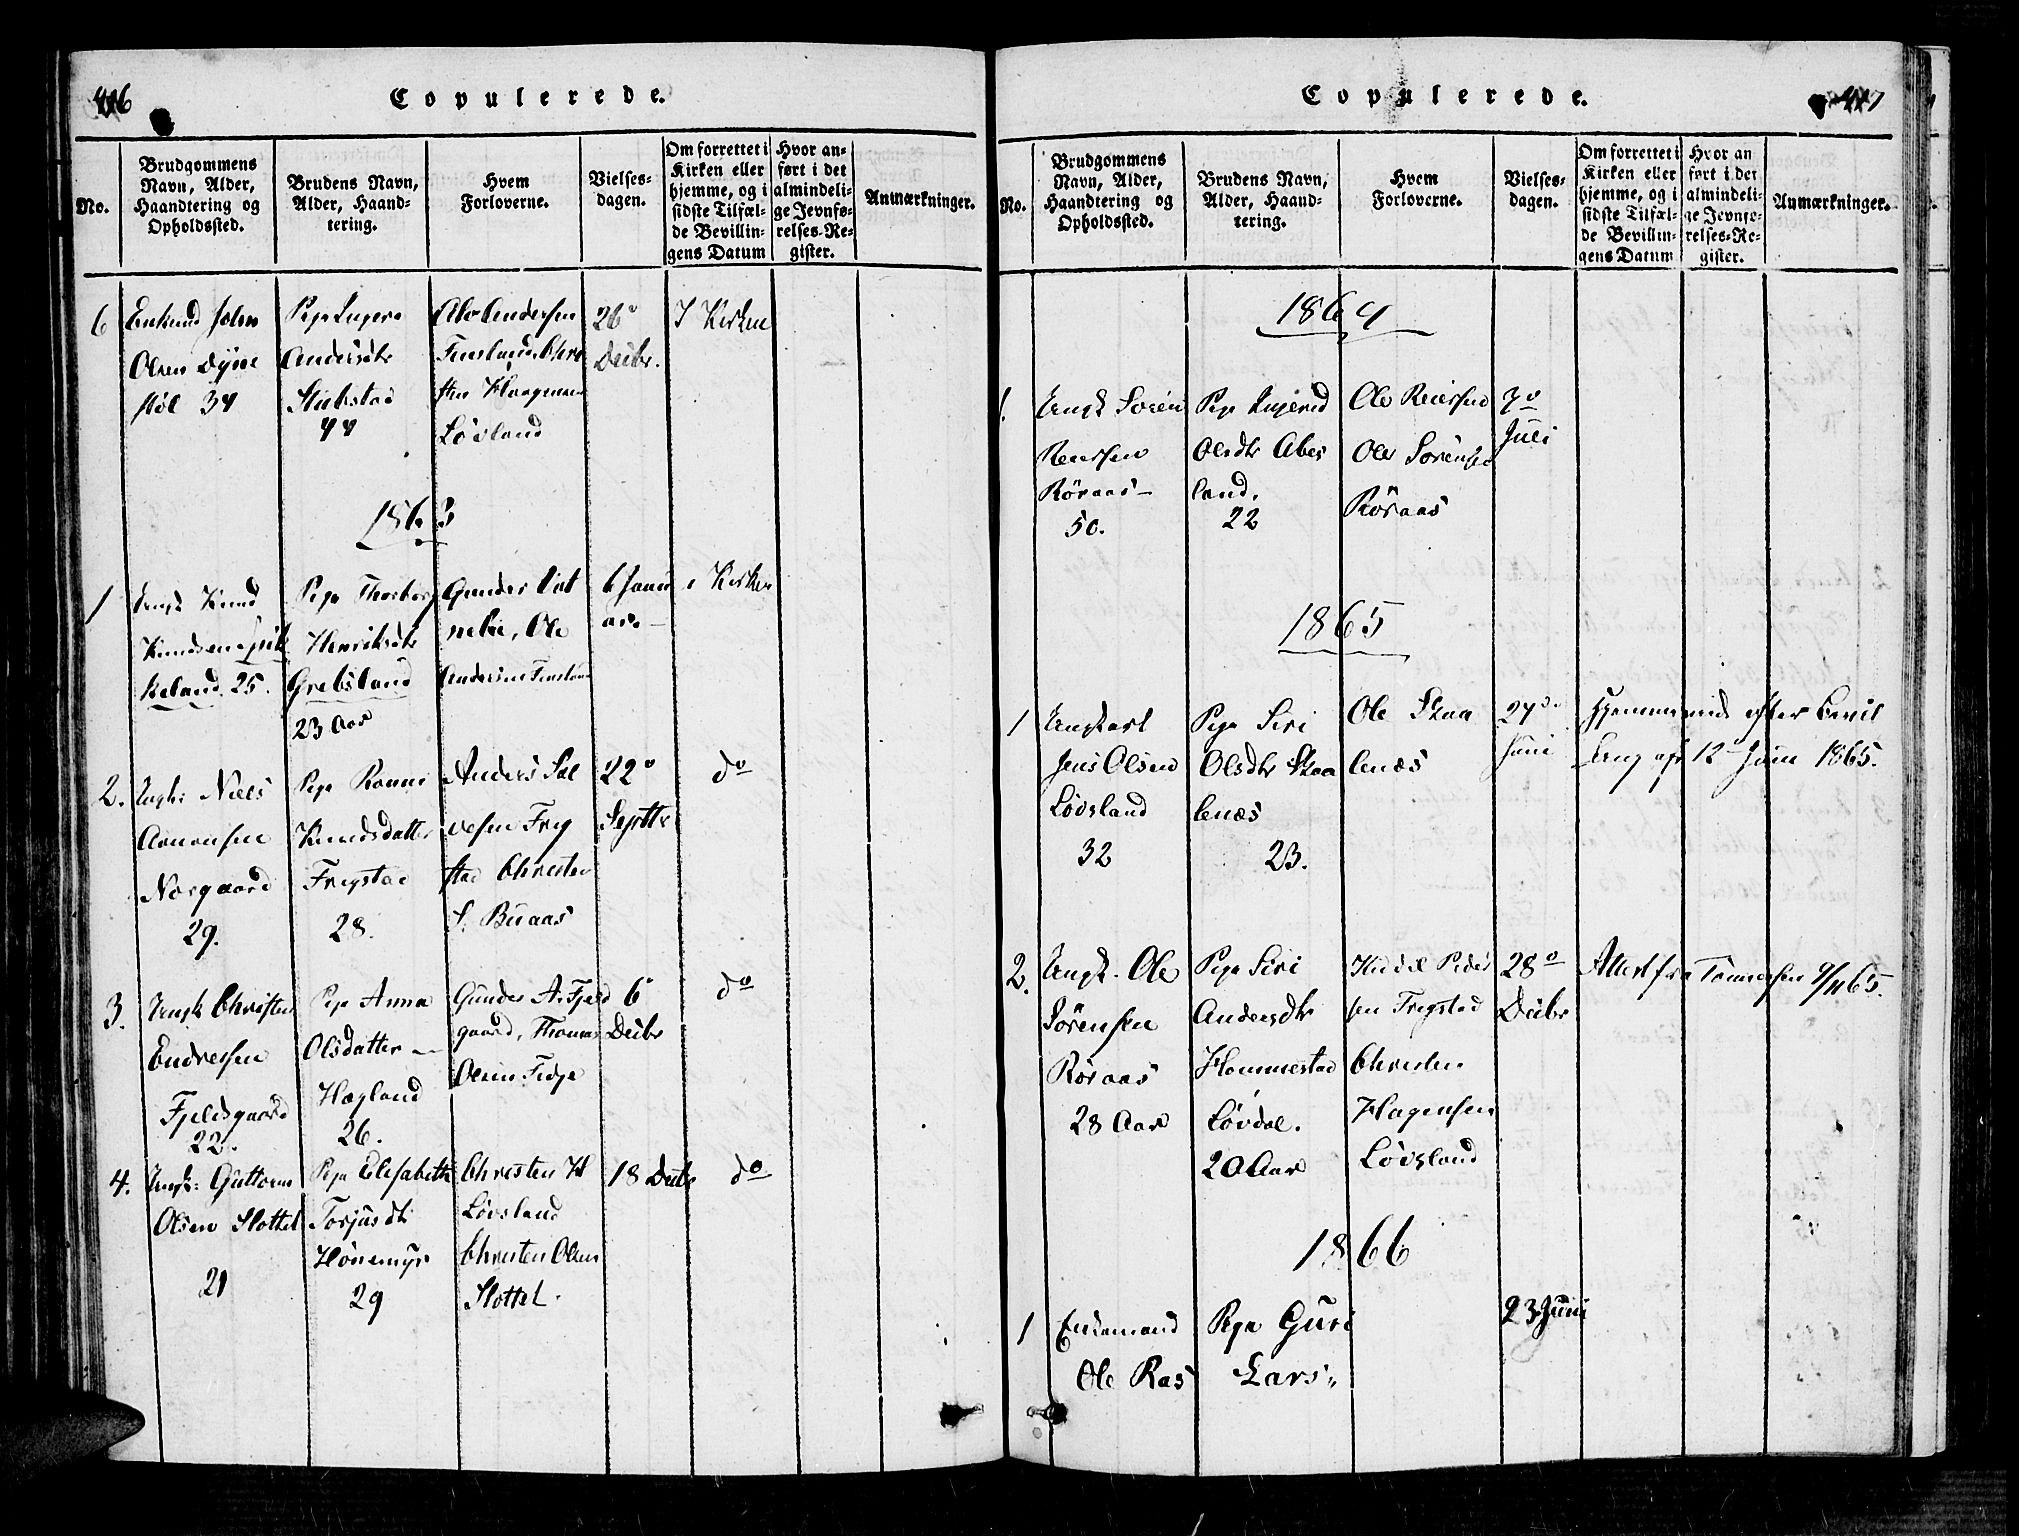 416
Copulerede.
No.
Brudgommens Navn, Alder, Haandtering og Opholdssted.
Brudens Navn, Alder, Haandtering.
Hvem Forloverne.
Vielsesdagen.
Om forrettet i Kirken eller hjemme, og i sidste Tilfælde Bevillingens Datum
Hvor anført i det almindelige Jevnførelses-Register.
Anmærkninger.
6
Enkmd John
Olsen Dyne
støl 34
Pige Ingera
Andersdtr
Stubstad
44
Alv Andersen
Finsland, Chri
sten Haagensen
Løvland
26de
Decbr.
I Kirken
1863
1
Ungk Knud
Knudsen
keland. 25.
Pige Thorbor
Henriksdtr
Grebsland
23 Aar
Gunder
Ole
Andersen Finsland
6 Janu
ar.
i Kirken
2.
Ungk: Niels
Aanensen
Norgaard
29.
Pige Ronni
Knudsdatter
Frigstad
28.
Anders Sal
vesen Frig
stad Christen
S. Buaas
22de
Septbr
do
3.
Ungk Christen
Endresen
Fjeldsgaard
22.
Pige Anna
Olsdatter
Hægland
26.
Gunder A. Fjeld
gaard, Thomas
Olsen Fidje
6te
Decbr
do
4.
Ungk: Guttorm
Olsen Slottet
21
Pige Elisabeth
Torjusdtr
Hønemyr
29
Christen H
Løvsland
Christen Olsen
Slottet.
18 Decbr
do
417
Copulerede.
No.
Brudgommens Navn, Alder, Haandtering og Opholdssted.
Brudens Navn, Alder, Haandtering.
Hvem Forloverne.
Vielsesdagen.
Om forrettet i Kirken eller hjemme, og i sidste Tilfælde Bevillingens Datum
Hvor anført i det almindelige Jevnførelses-Register.
Anmærkninger.
1864
1.
Ungk Søren
Reiersen
Røraas
50.
Pige Ingerid
Olsdtr Abes
land.
22
Ole Reiersen
Ole Sørensen
Røraas
7de
Juli
1865
1
Ungkarl
Jens Olsen
Løvsland
32
Pige Siri
Olsdtr Skaa
lenæs
23.
Ole Skaa
lenæs
27de
Juni
Hjemmevied efter Bevil
ling af 12 Juni 1865.
2.
Ungk. Ole
Sørensen
Røraas
28 Aar
Pige Siri
Andersdtr
Hommestad
Løvdal.
20 Aar
Peder
sen Frigstad
Christen
Hagensen
Løvsland
28de
Decbr
Attest fra Tønnessen 9/11 65.
1866
1
Enkemand
Ole Ras
Pige Guri
Lars"
23 Juni